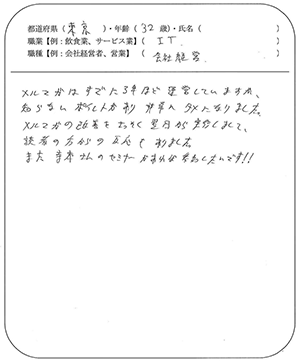 都道府県(東京)・年齢(32歳)・氏名( )
職業【例:飲食業、サービス業】( IT. )
職種【例:会社経営者、営業】( 会社経営 )
メルマガはすでに3年ほど運営していますが、
知らないポイントがあり 非常に タメになりました。
メルマガの改善を さっそく 翌日から 実行しまして、
読者の方からの 反応も ありました。
また さんのセミナー があれば 参加したいです!!